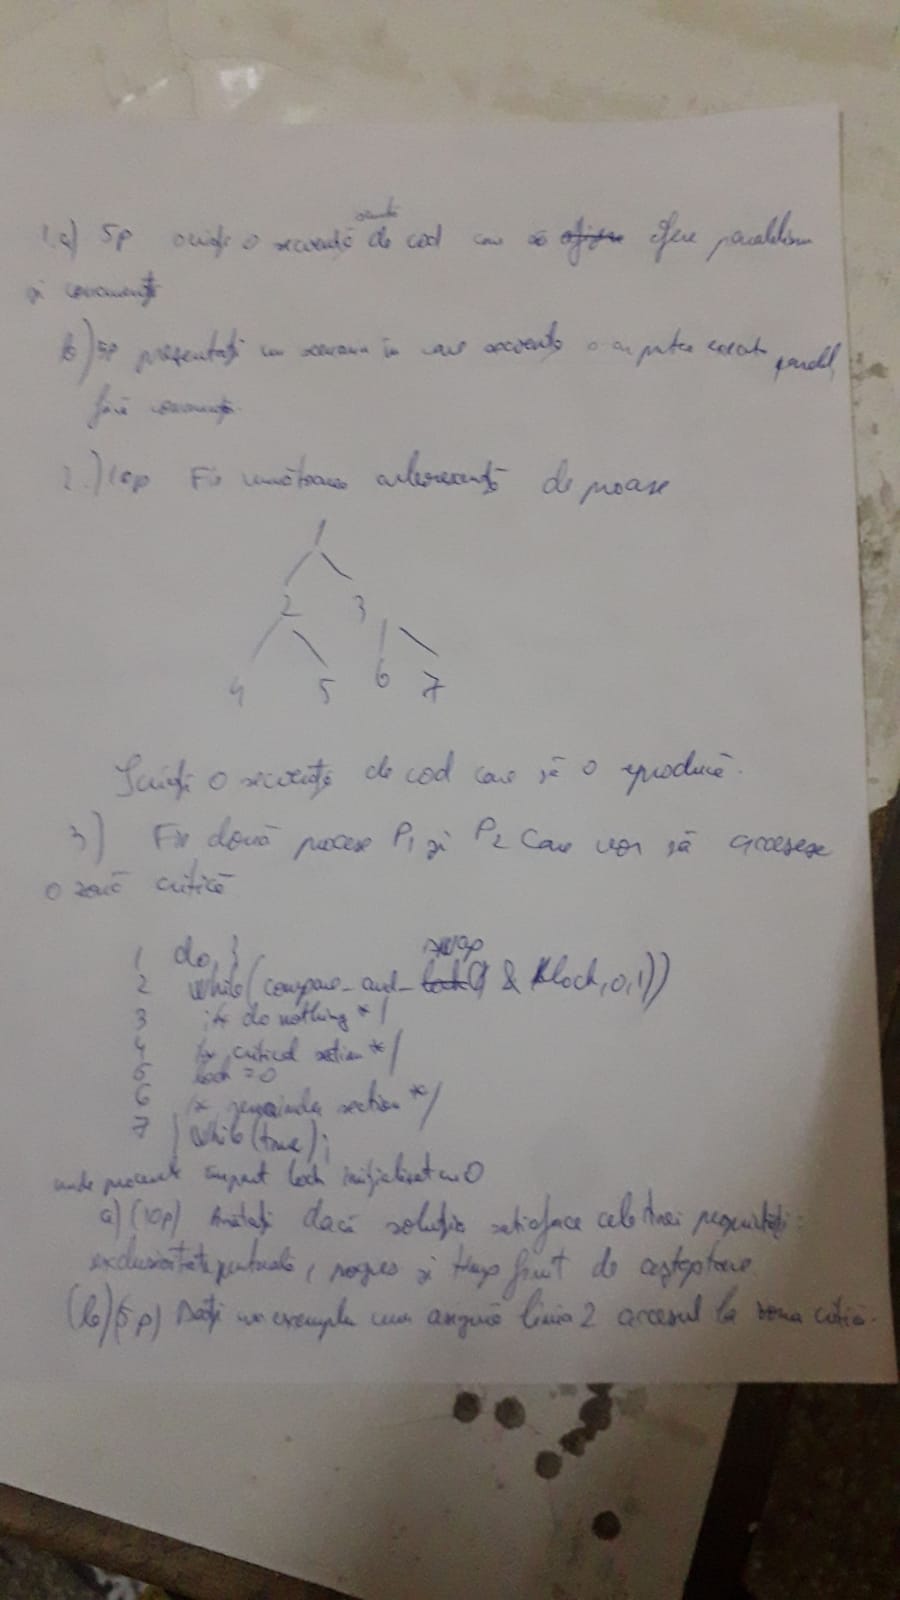 1.a) 5p scrieți o secvență scurtă de cod care să ofere paralelism
și concurență
b) 5p prezentați un scenariu în care secvența s-ar putea executa paralel
fără concurență.
2.) 10p Fie următoarea arborescență de procese
1
2 3
4 5 6 7
Scrieți o secvență de cod care să o reproducă.
3) Fie două procese P1 și P2 care vor să acceseze
o zonă critică
1 do {
2 while (compare_and_swap(&lock,0,1))
3 ; /* do nothing */
4 /* critical section */
5 lock = 0
6 /* remainder section */
7 } while (true);
unde procesele împart lock inițializat cu 0
a) (10p) Arătați dacă soluția satisface cele trei proprietăți:
exclusivitate mutuală, progres și timp finit de așteptare.
(b) (5p) Dați un exemplu cum asigură linia 2 accesul la zona critică.